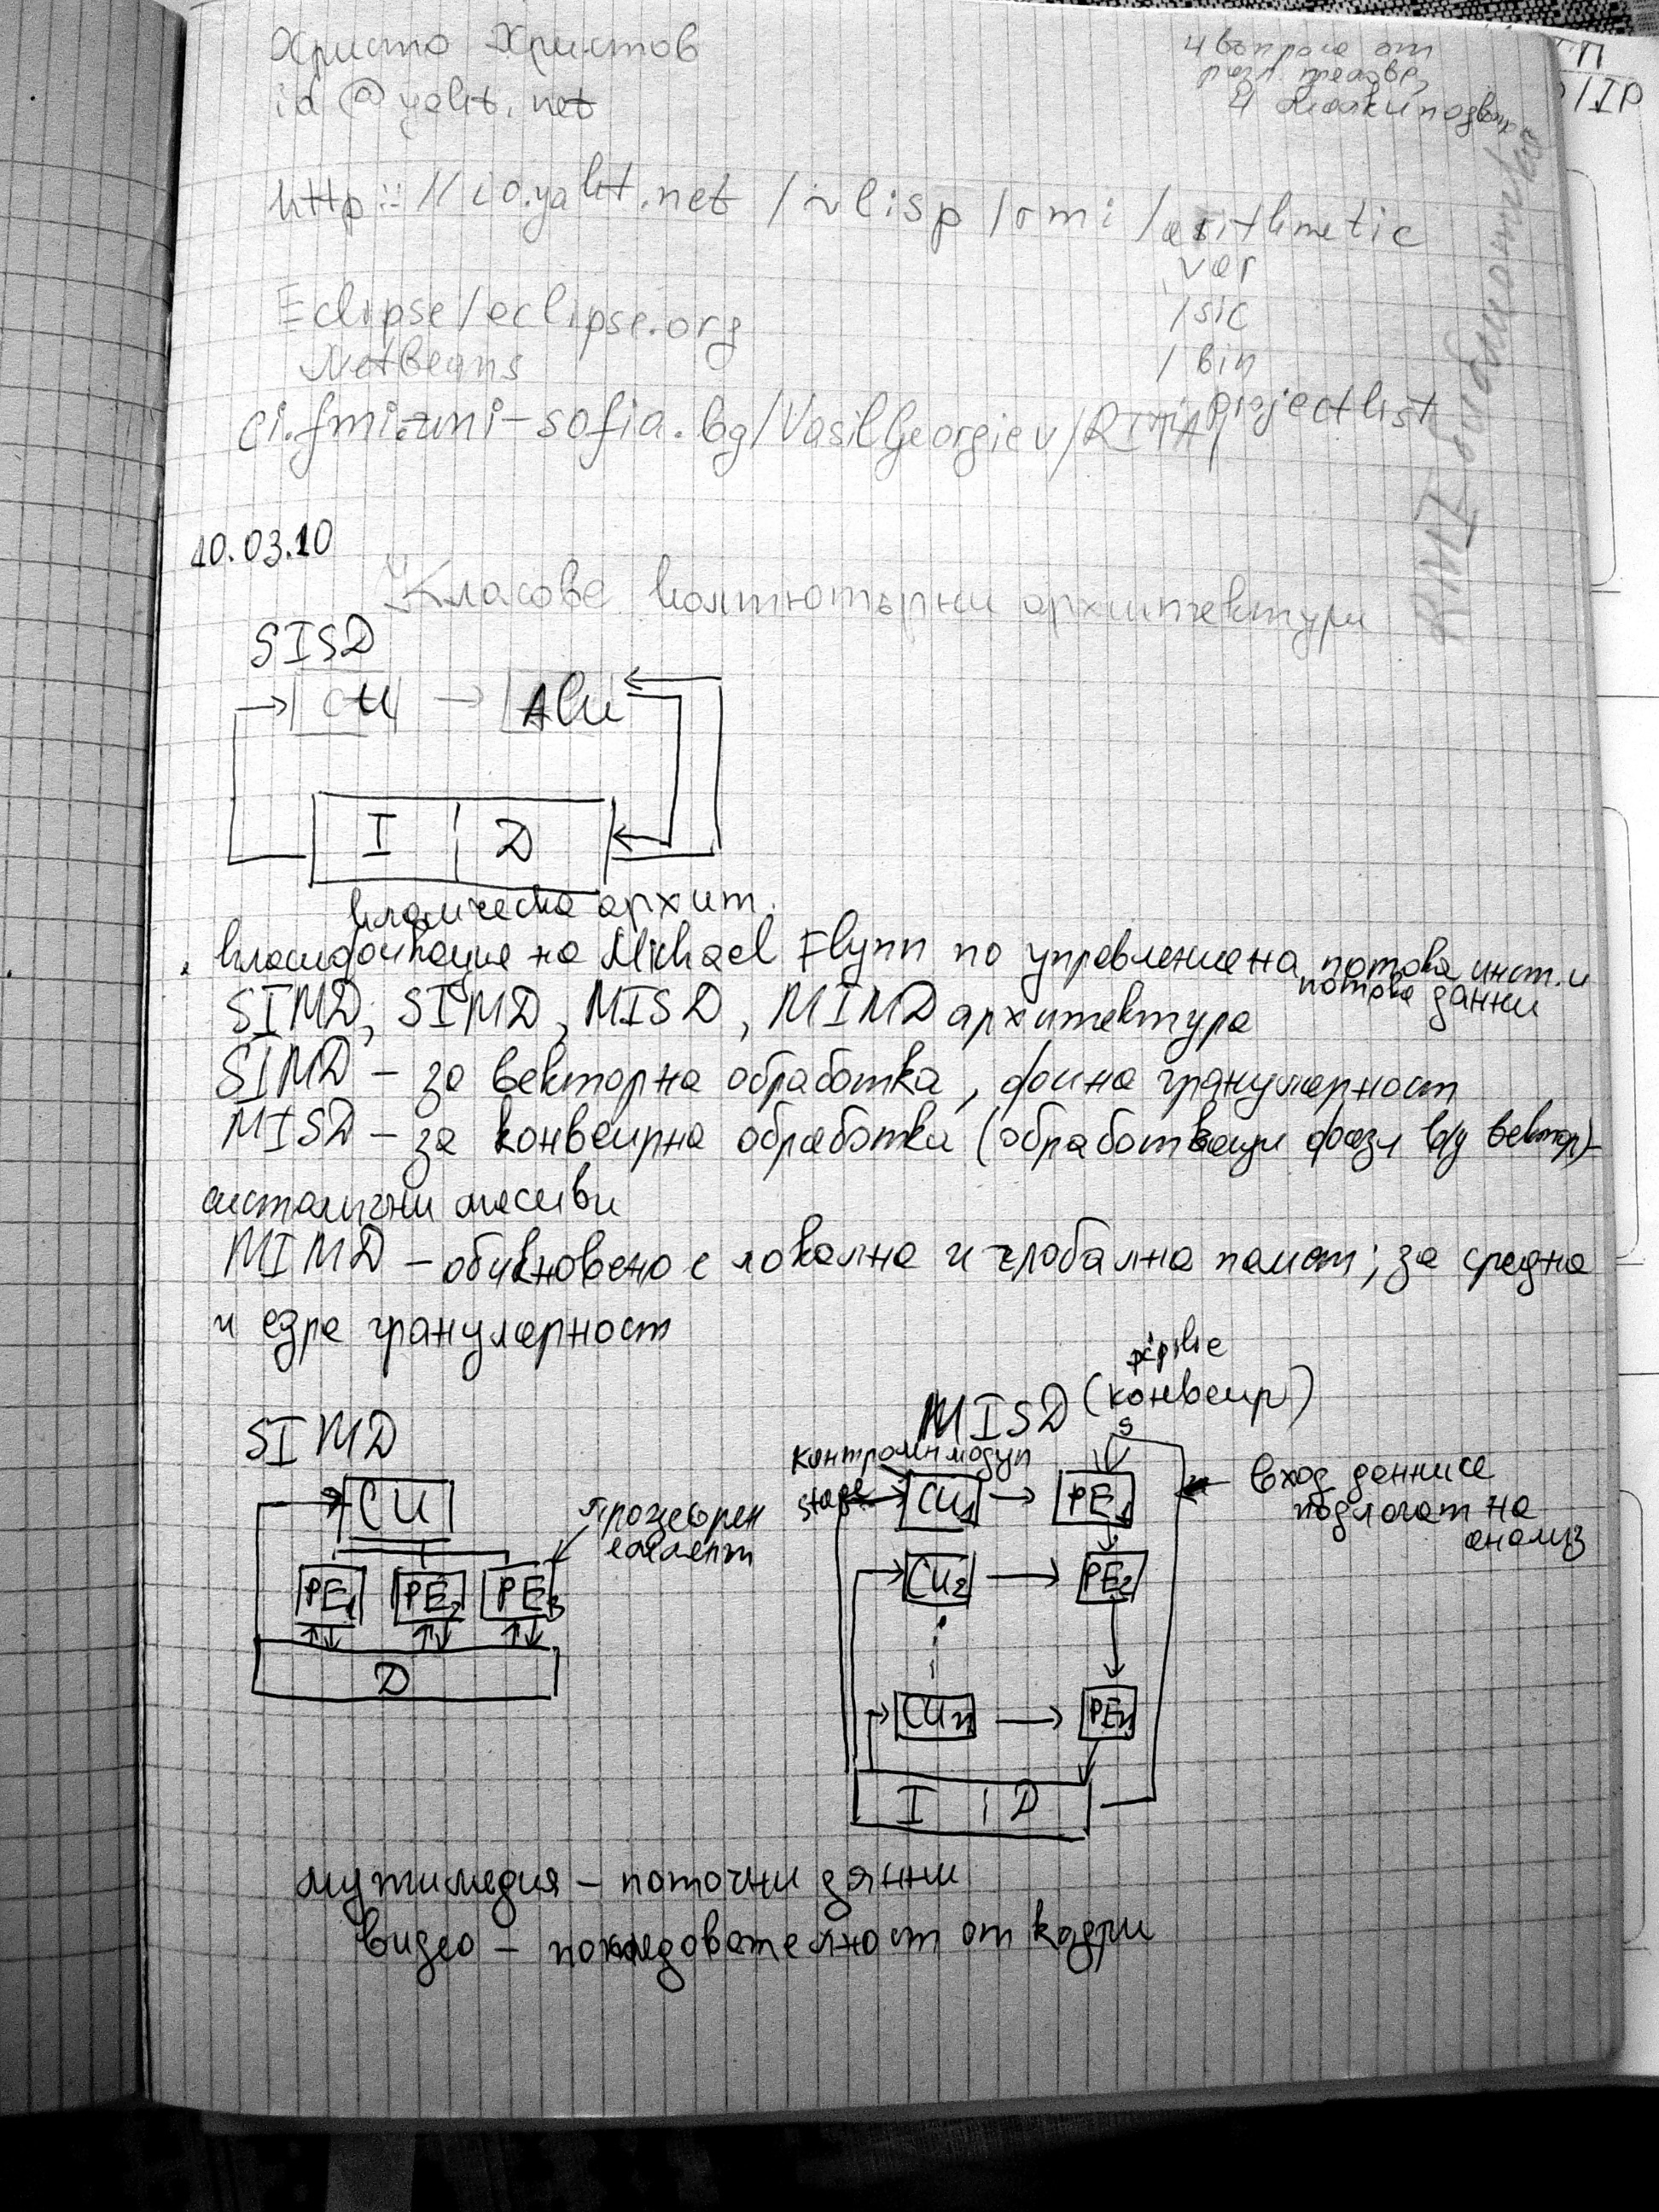 Христо Христов
id@yalit.net
4 въпроса от
разл. 
4 подвъпр
/IP
http://io.yalit.net/~lisp/rmi/arithmetic
var
/sic
/bin
Eclipse/eclipse.org
NetBeans
ci.fmi.uni-sofia.bg/VasilGeorgiev/ projectlist
RMI библиотека
10.03.10
Класове компютърни архитектури
SISD
CU
ALU
I Д
класическа архит.
класификация на Michael Flynn по управление на потока инст. и
потока данни
SIMD, SIMD, MISD, MIMD архитектура
SIMD – за векторна обработка, фина грануларност
MISD – за конвеирна обработка (обработващи фази в/у вектор) –
систалични масиви
MIMD – обикновено с локална и глобална памет; за средна
и едра грануларност
SIMD
CU
PE1 PE2 PE3
процесорен
елемент
Д
MISD (конвеир)
контролен модул
stage
CU1 PE1
CU2 PE2
CUn PEn
I Д
S
вход данните се
подлагат на
анализ
мутимедия – поточни данни
видео – последователност от кадри